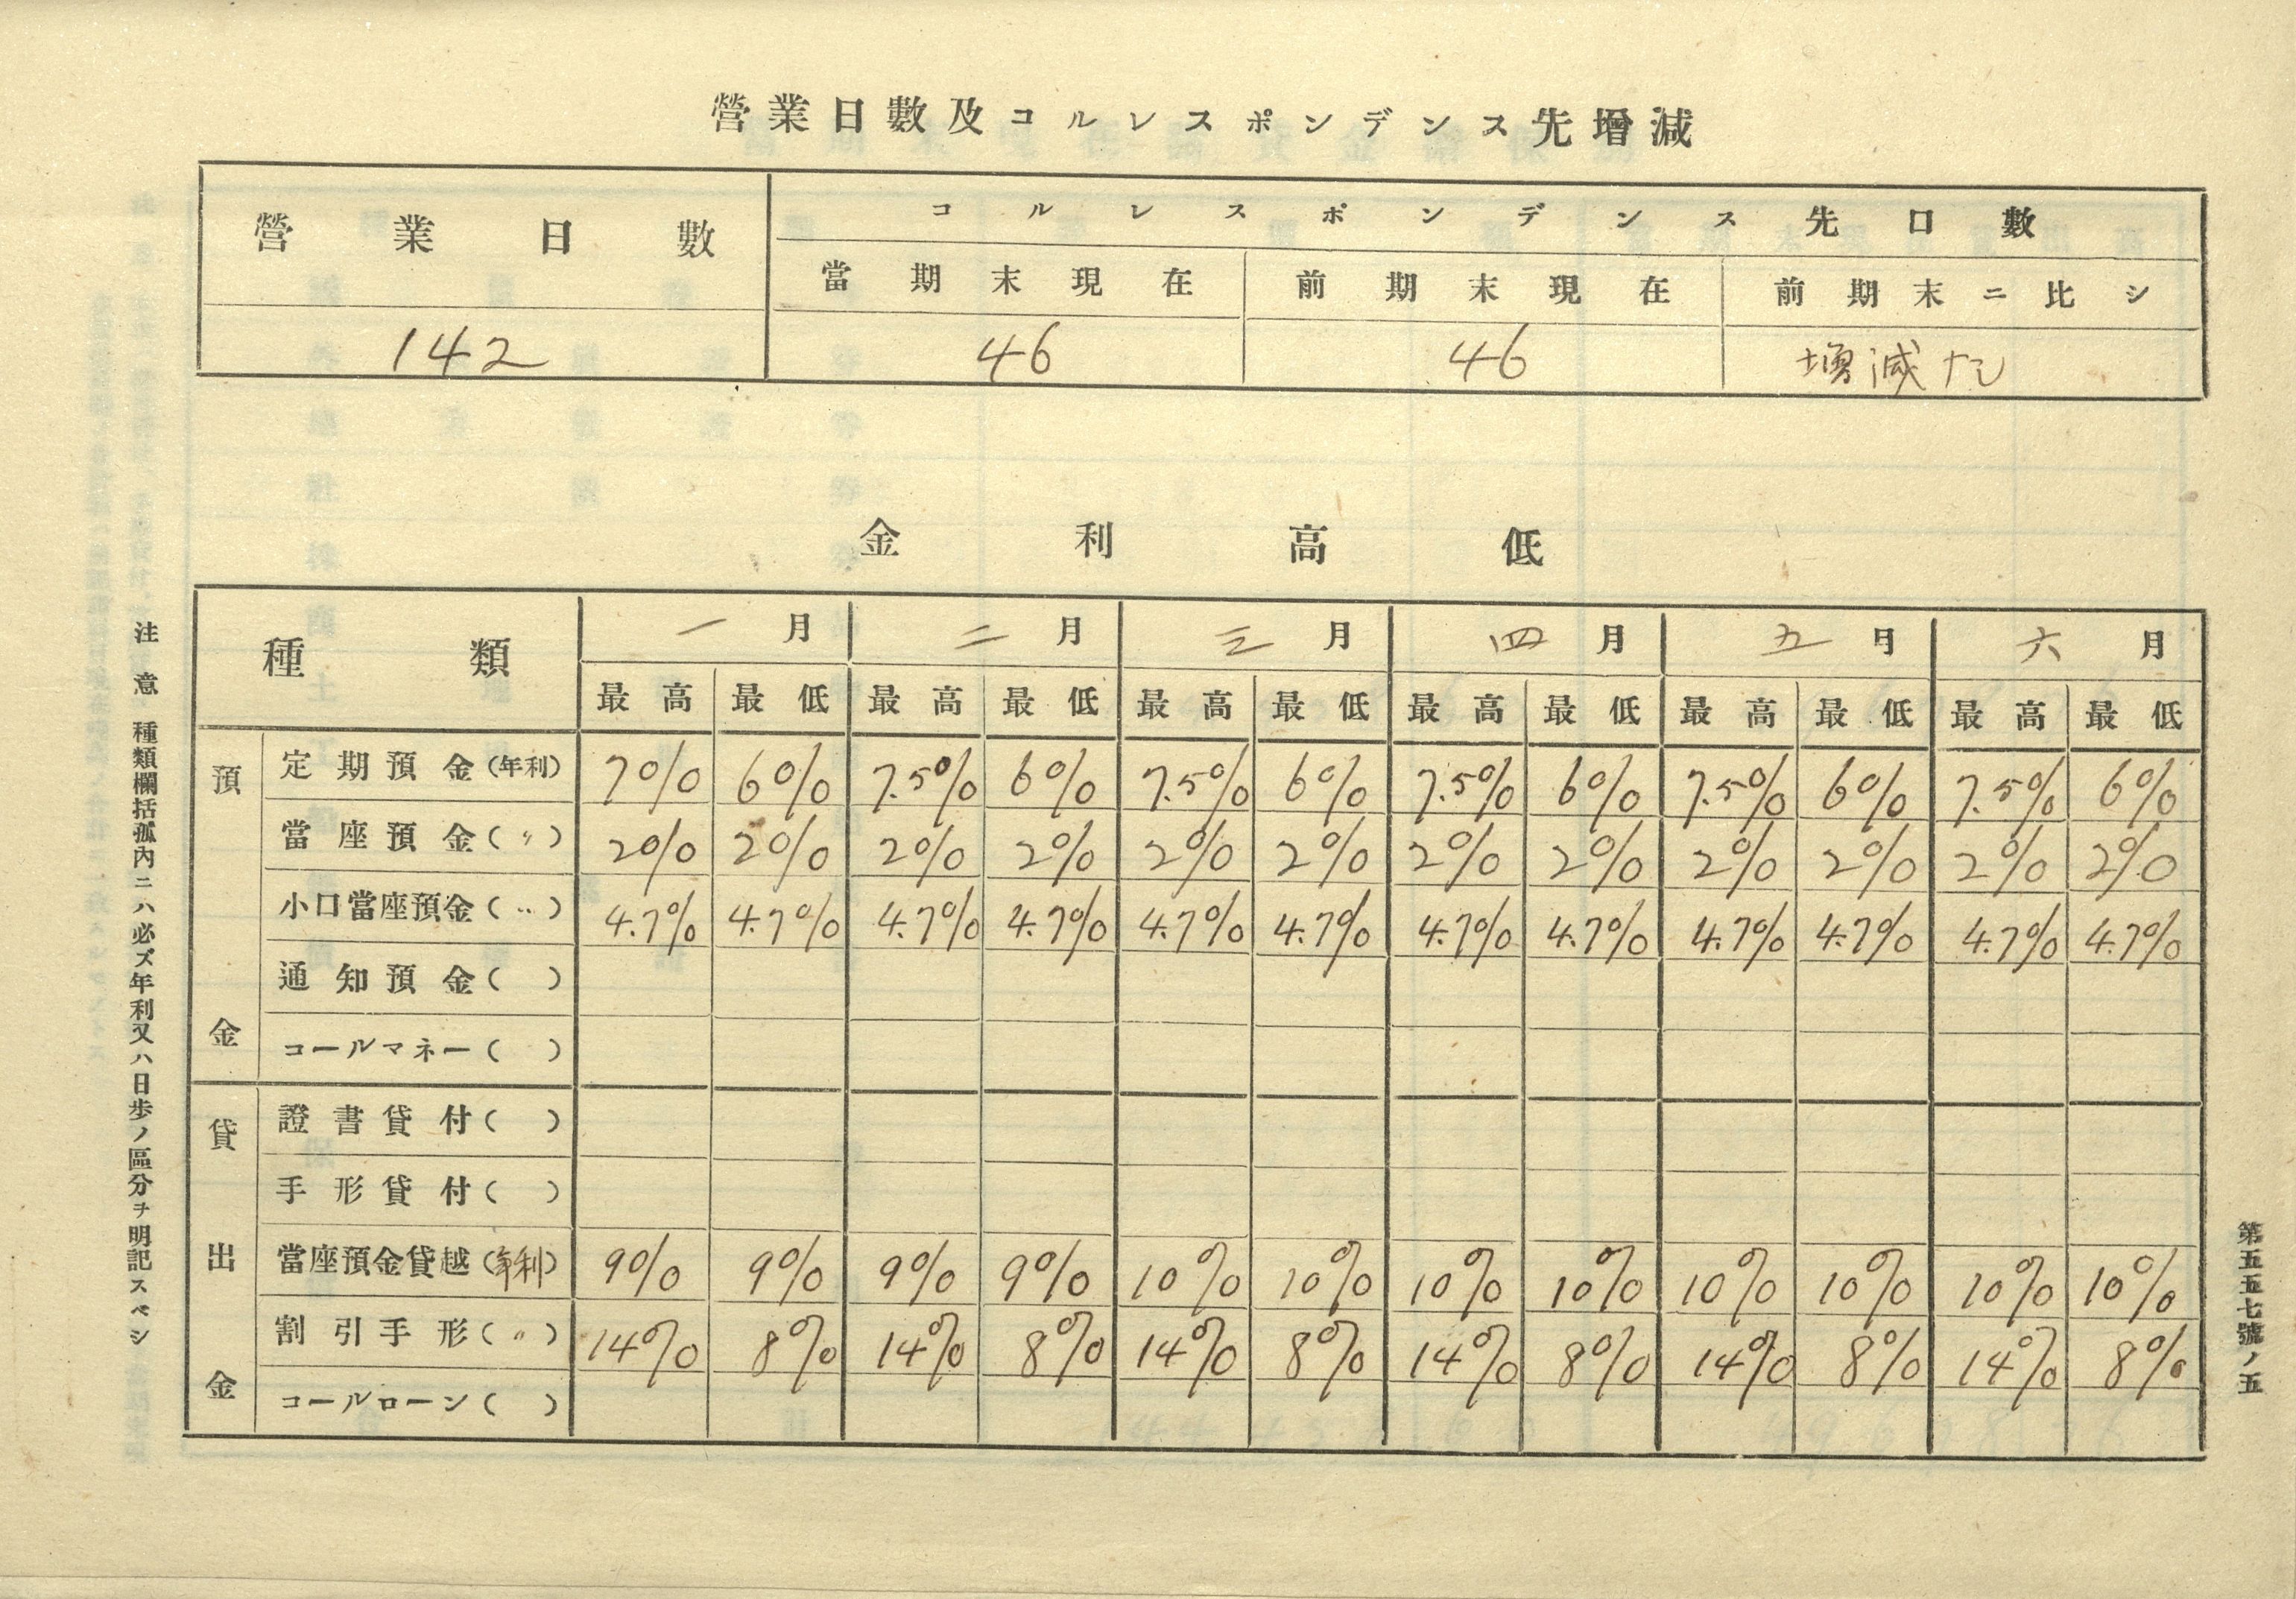 營業日數及コルレスポンデンス先增減
營業日數 コルレスポンデンス先口數
當期末現在 前期末現在 前期末ニ比シ
142 46 46 増減ナシ
金利高低
種類 一月 二月 三月 四月 五月 六月
最高 最低 最高 最低 最高 最低 最高 最低 最高 最低 最高 最低
預金
定期預金(年利) 7% 6% 7.5% 6% 7.5% 6% 7.5% 6% 7.5% 6% 7.5% 6%
當座預金(〃) 2% 2% 2% 2% 2% 2% 2% 2% 2% 2% 2% 2%
小口當座預金(〃) 4.7% 4.7% 4.7% 4.7% 4.7% 4.7% 4.7% 4.7% 4.7% 4.7% 4.7% 4.7%
通知預金( )
コールマネー( )
貸出金
證書貸付( )
手形貸付( )
當座預金貸越(年利) 9% 9% 9% 9% 10% 10% 10% 10% 10% 10% 10% 10%
割引手形(〃) 14% 8% 14% 8% 14% 8% 14% 8% 14% 8% 14% 8%
コールローン( )
注意 種類欄括孤內ニハ必ズ年利又ハ日步ノ區分ヲ明記スベシ
第五五七號ノ五